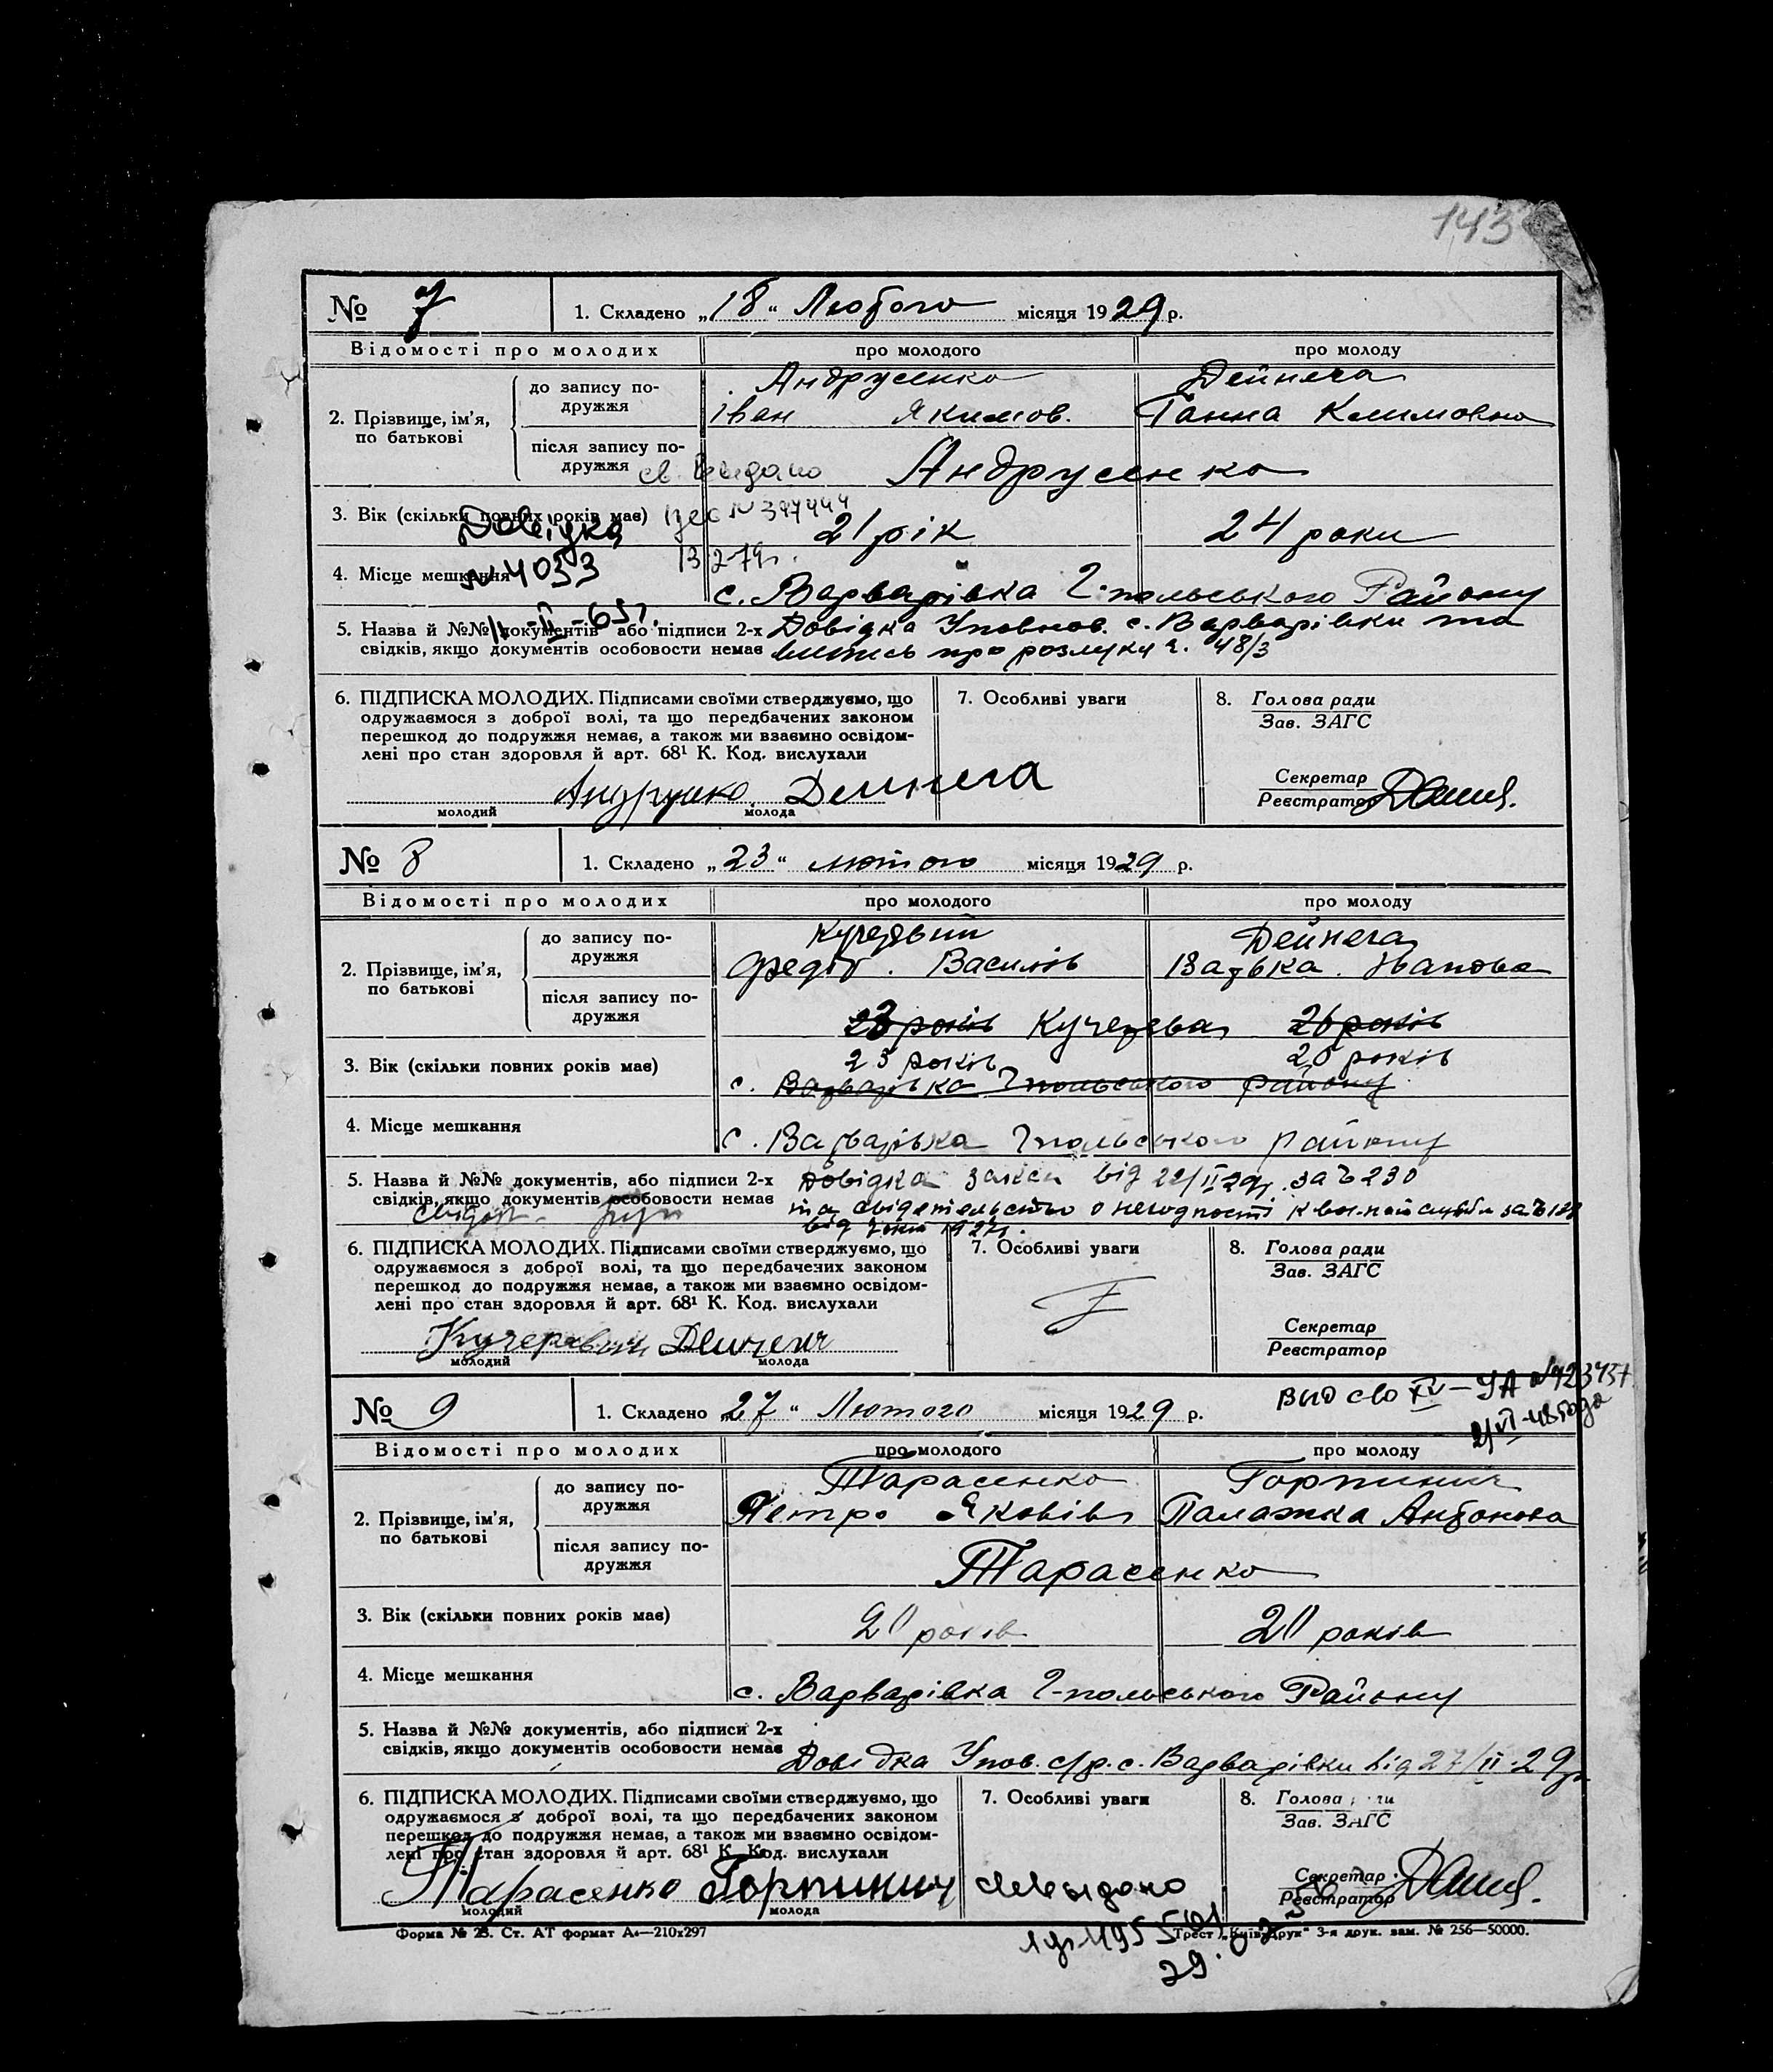 143
№ 7 1. Складено „18“ Лютого місяця 1929 р.
Відомості про молодих про молодого про молоду
2. Прізвище, ім'я, по батькові
до запису подружжя
Андрусенко Дейнега
Іван Якимов. Ганна Климовна
після запису по-
дружжя св. видано Андрусенко
3. Вік (скільки повних років має) 21 рік 24 роки
Довідка № 397444
№ 4033 13.2-79г.
4. Місце мешкання с. Варварівка Г-польського Району
II-65г.
5. Назва й №№ документів або підписи 2-х Довідка Уповнов. с. Варварівки та
свідків, якщо документів особовости немає витись про розлуку 48/3
6. ПІДПИСКА МОЛОДИХ. Підписами своїми стверджуємо, що 7. Особливі уваги 8. Голова ради
одружаємося з доброї волі, та що передбачених законом Зав. ЗАГС
перешкод до подружжя немає, а також ми взаємно освідом-
лені про стан здоровля й арт. 68¹ К. Код. вислухали Секретар
Дейнега Реєстратор
молодий молода
№ 8 1. Складено „23“ лютого місяця 1929 р.
Відомості про молодих про молодого про молоду
до запису по-
дружжя
Кучерявий Дейнега
2. Прізвище, ім'я, Федір Василів Варька Іванова
по батькові
після запису по-
дружжя 23 років Кучерява 26 років
3. Вік (скільки повних років має) 25 років 20 років
с. Варварівка Гпольського району
4. Місце мешкання с. Варварівка Гпольського району
5. Назва й №№ документів, або підписи 2-х Довідка від 22/II 29р. за № 230
свідків, якщо документів особовости немає та свідетельство о негодності к воен-ной службі за №
від 1927р.
6. ПІДПИСКА МОЛОДИХ. Підписами своїми стверджуємо, що 7. Особливі уваги 8. Голова ради
одружаємося з доброї волі, та що передбачених законом Зав. ЗАГС
перешкод до подружжя немає, а також ми взаємно освідом-
лені про стан здоровля й арт. 68¹ К. Код. вислухали Секретар
Кучерявий Дейнега Реєстратор
молодий молода
выд сво XV – УА № 423457
№ 9 1. Складено „27“ Лютого місяця 1929 р.
Відомості про молодих про молодого про молоду
до запису по-
дружжя
Тарасенко Горпинич
2. Прізвище, ім'я, Петро Яковів Палажка Антонова
по батькові
після запису по-
дружжя Тарасенко
3. Вік (скільки повних років має) 20 років 20 років
4. Місце мешкання с. Варварівка Г-польського Району
5. Назва й №№ документів, або підписи 2-х
свідків, якщо документів особовости немає Довідка Упов. с/р. с. Варварівки від 27/II 29р.
6. ПІДПИСКА МОЛОДИХ. Підписами своїми стверджуємо, що 7. Особливі уваги 8. Голова ради
одружаємося з доброї волі, та що передбачених законом Зав. ЗАГС
перешкод до подружжя немає, а також ми взаємно освідом-
лені про стан здоровля й арт. 68¹ К. Код. вислухали Секретар
Тарасенко Горпинич св. выдано Реєстратор
молодий молода
Форма № 23. Ст. АТ формат А₄—210х297 Трест „Київ-Друк“ 3-я друк. зам. № 256—50000.